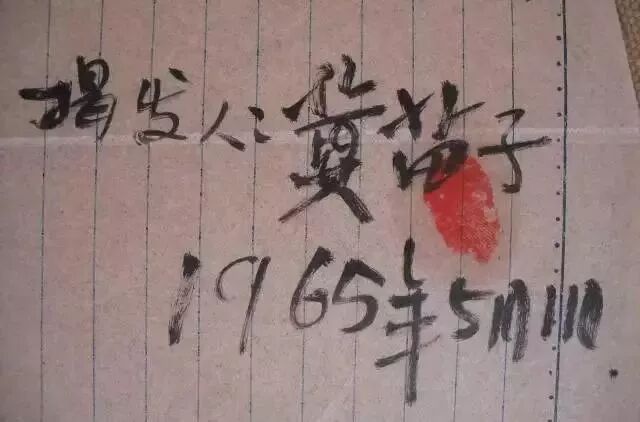 揭发人:黄苗子
1965年5月